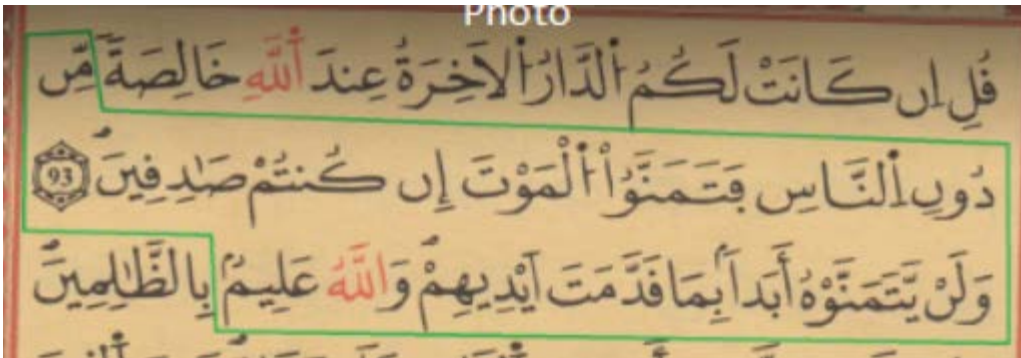 Photo
قُلِ اِن كَانَتْ لَكُمُ اُ۬لدَّارُ اُ۬لَاخِرَةُ عِندَ اَ۬للَّهِ خَالِصَةٗ مِّن
دُونِ اِ۬لنَّاسِ فَتَمَنَّوُاْ اُ۬لْمَوْتَ إِن كُنتُمْ صَٰدِقِينَۖ 93
وَلَنْ يَّتَمَنَّوْهُ أَبَداَۢ بِمَا قَدَّمَتَ اَيْدِيهِمْۖ وَاللَّهُ عَلِيمُۢ بِالظَّٰلِمِينَۖ